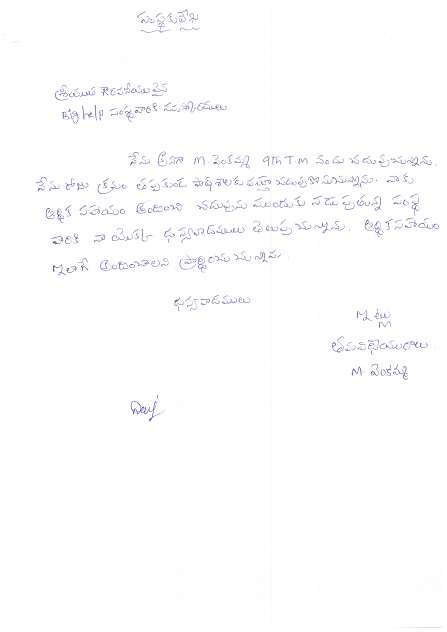 సంస్థకులేఖ
శ్రీయుత గౌరవనీయులైన
Big help సంస్థవారికి నమస్కారములు.
నేను M. వెంకమ్మ 9th T.M నందు చదువుచున్నాను.
నేను రోజు క్రమం తప్పకుండ పాఠశాలకు వస్తూ చదువుకొనుచున్నాను. నాకు
ఆర్థిక సహాయం అందించి చదువును ముందుకు నడుపుతున్న సంస్థ
వారికి నా యొక్క ధన్యవాదములు తెలుపుచున్నాను. ఆర్థికసహాయం
ఇలాగే అందించాలని ప్రార్థించుచున్నాను.
ధన్యవాదములు
ఇట్లు
తమవిధేయురాలు.
M. వెంకమ్మ